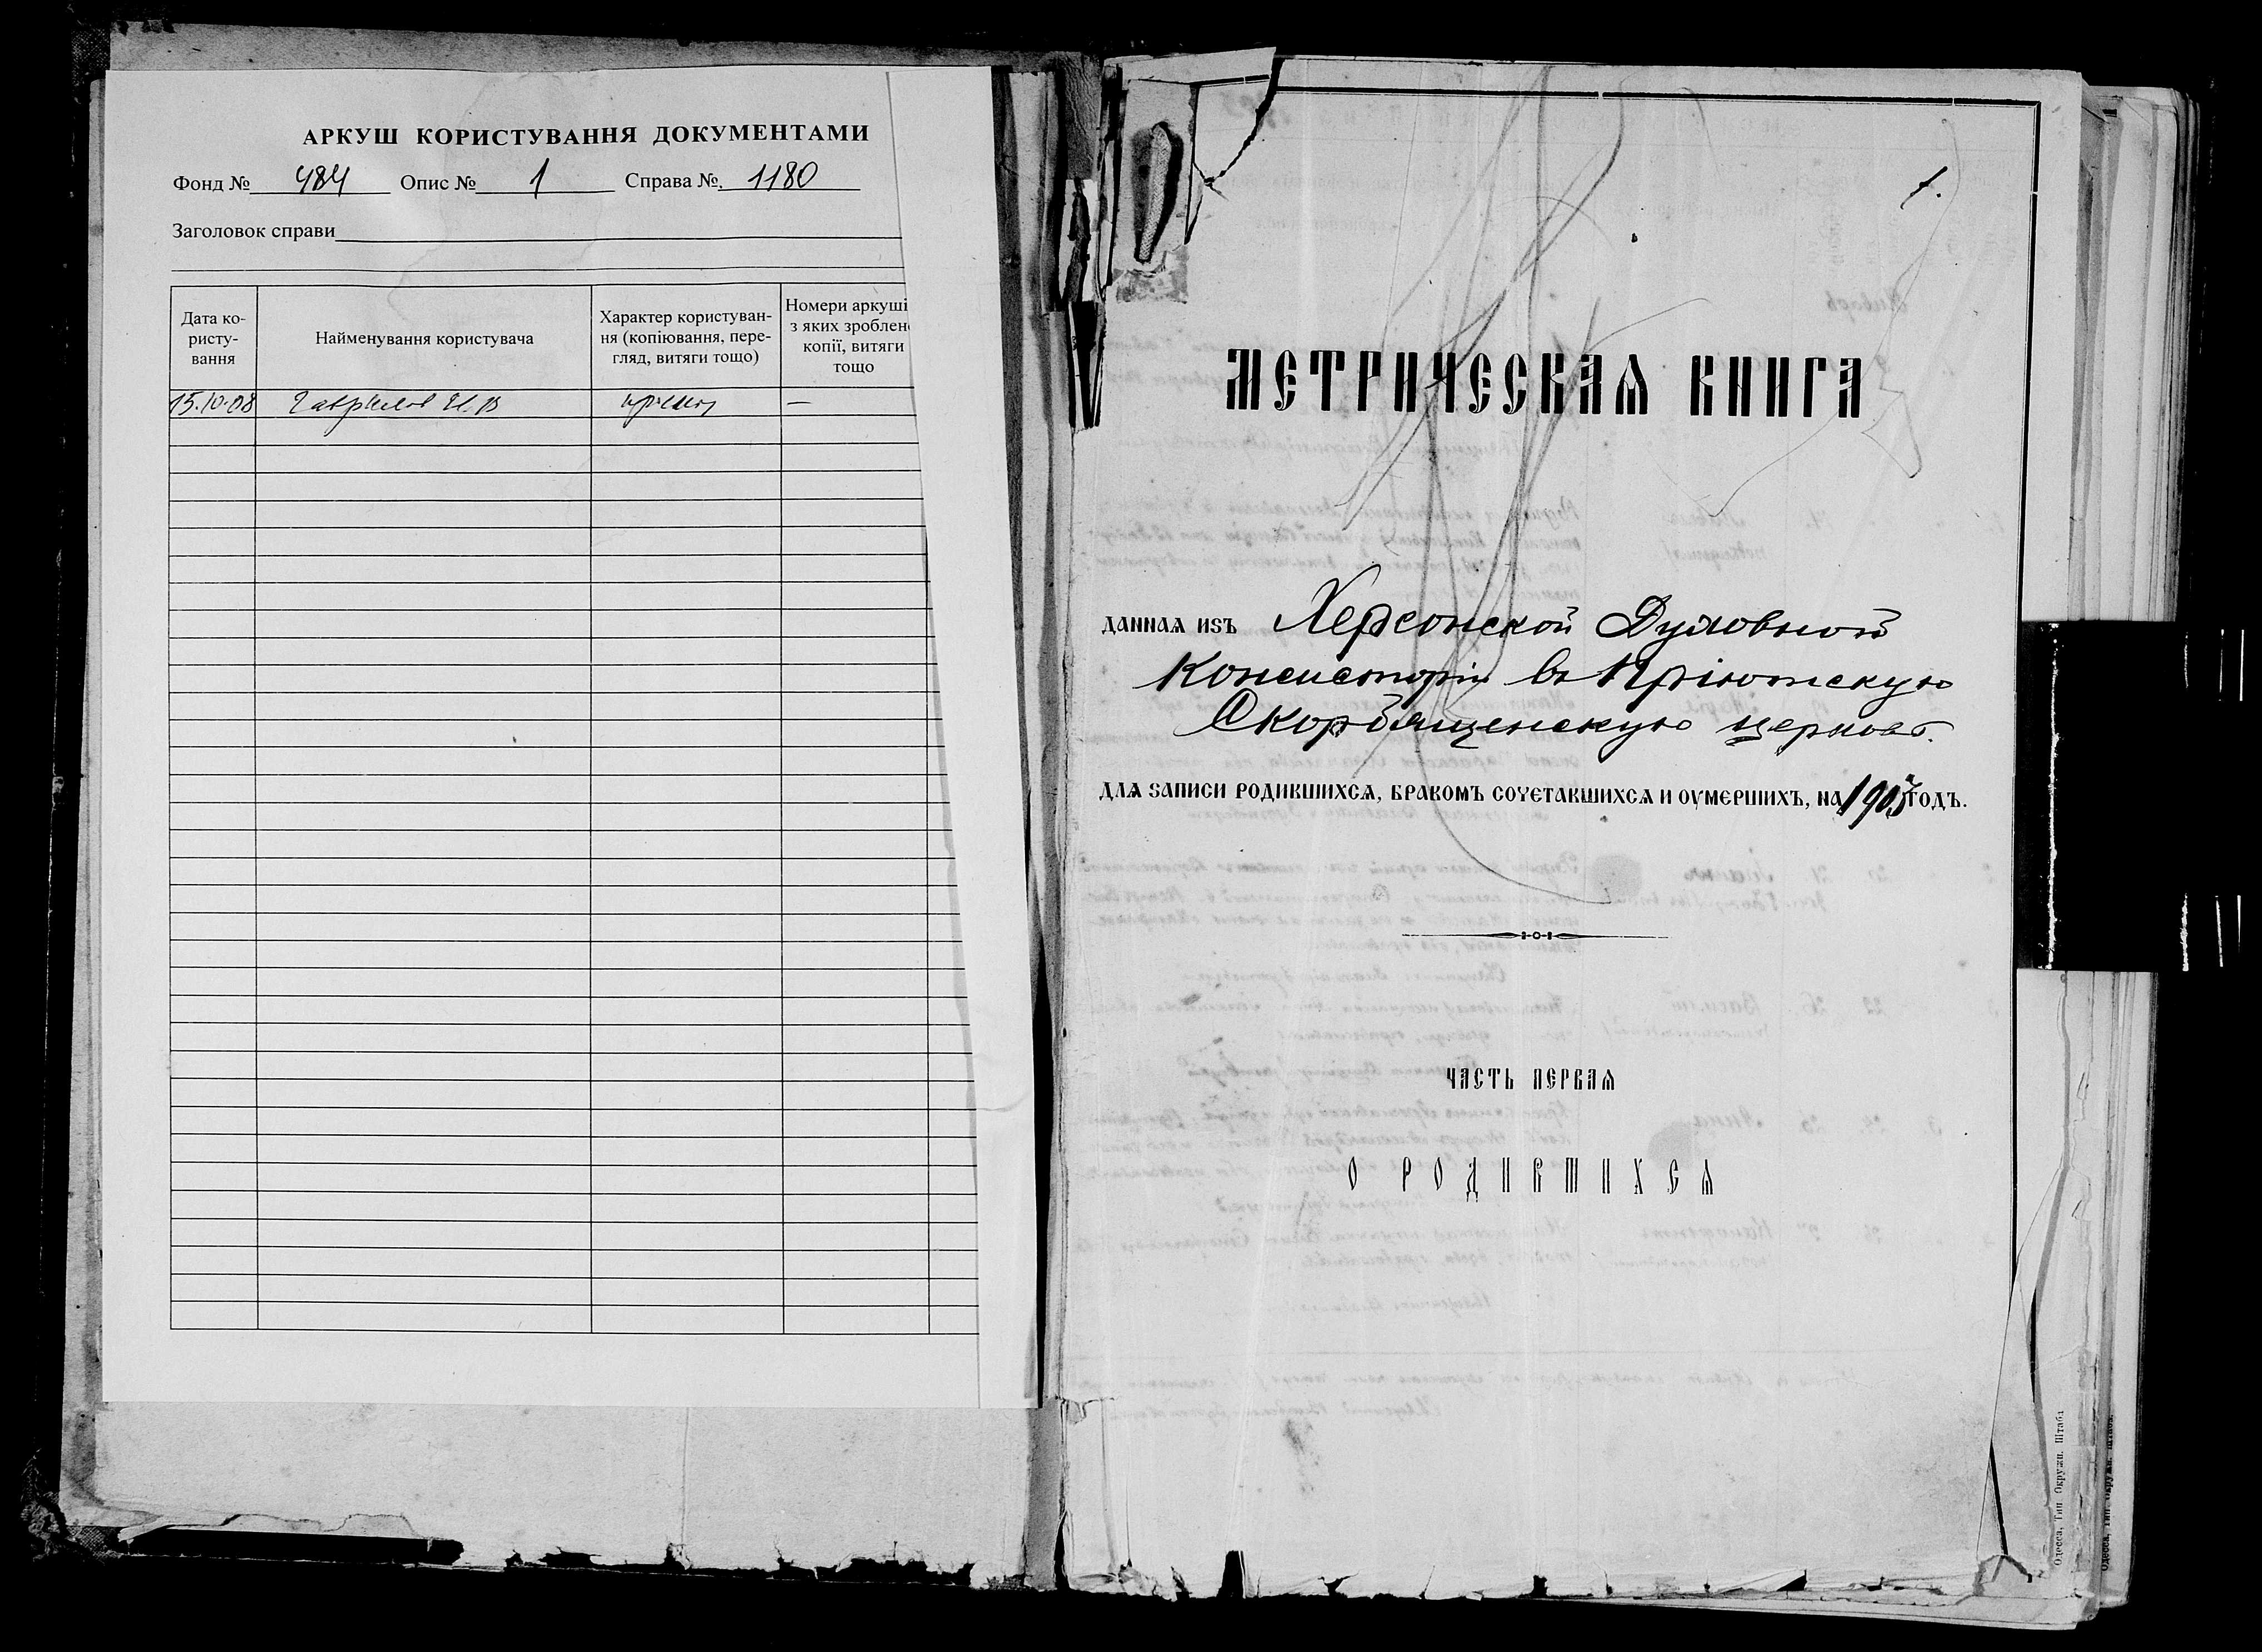 АРКУШ КОРИСТУВАННЯ ДОКУМЕНТАМИ
Фонд № 484 Опис № 1 Справа №. 1180
Заголовок справи
Дата ко-
ристу-
вання
Найменування користувача
Характер користуван-
ня (копіювання, пере-
гляд, витяги тощо)
Номери аркуші
з яких зроблен
копії, витяги
тощо
15.10.08 —
1.
МЕТРИЧЕСКАѦ КНИГА
ДАННАѦ ИЗЪ Херсонской Духовной
Консисторіи въ Пріютскую
Скорбященскую церковь.
ДЛѦ ЗАПИСИ РОДИВШИХСѦ, БРАКОМЪ СОЧЕТАВШИХСѦ И ОУМЕРШИХЪ, НА 1905 ГОДЪ.
ЧАСТЬ ПЕРВАѦ
О РОДИВШИХСѦ
Одесса, Тип. Окружн. Штаба